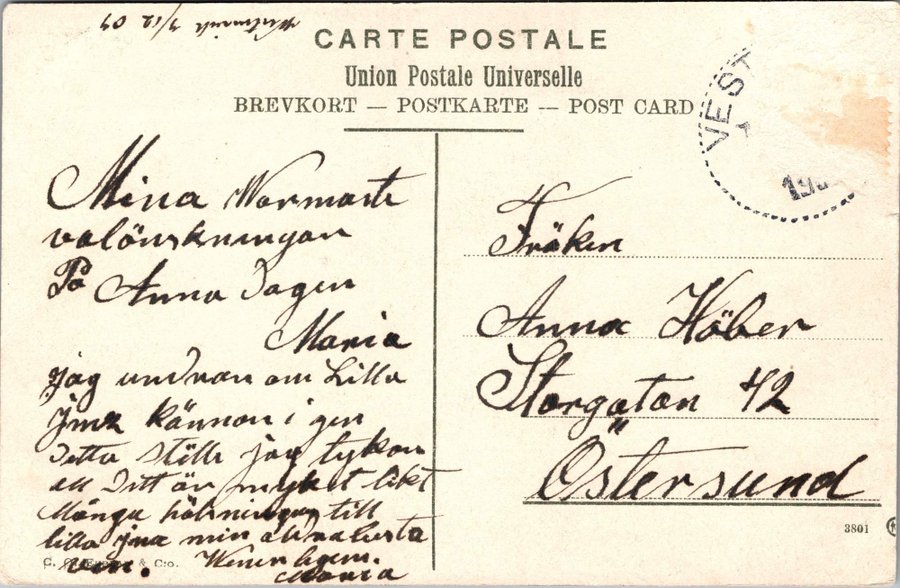 7/12 09
CARTE POSTALE
Union Postale Universelle
BREVKORT — POSTKARTE — POST CARD
VEST
19
Mina Warmaste
valönskningan
På Anna Dagen
Maria
jag undran om Lilla
kännon i gen
Detta ställe jag tykon
att Ditt är myket likt
Många hälsningan till
lilla min
vän.
Maria
Fröken
Anna Höber
Storgatan 42
Östersund
3801
& C:o.